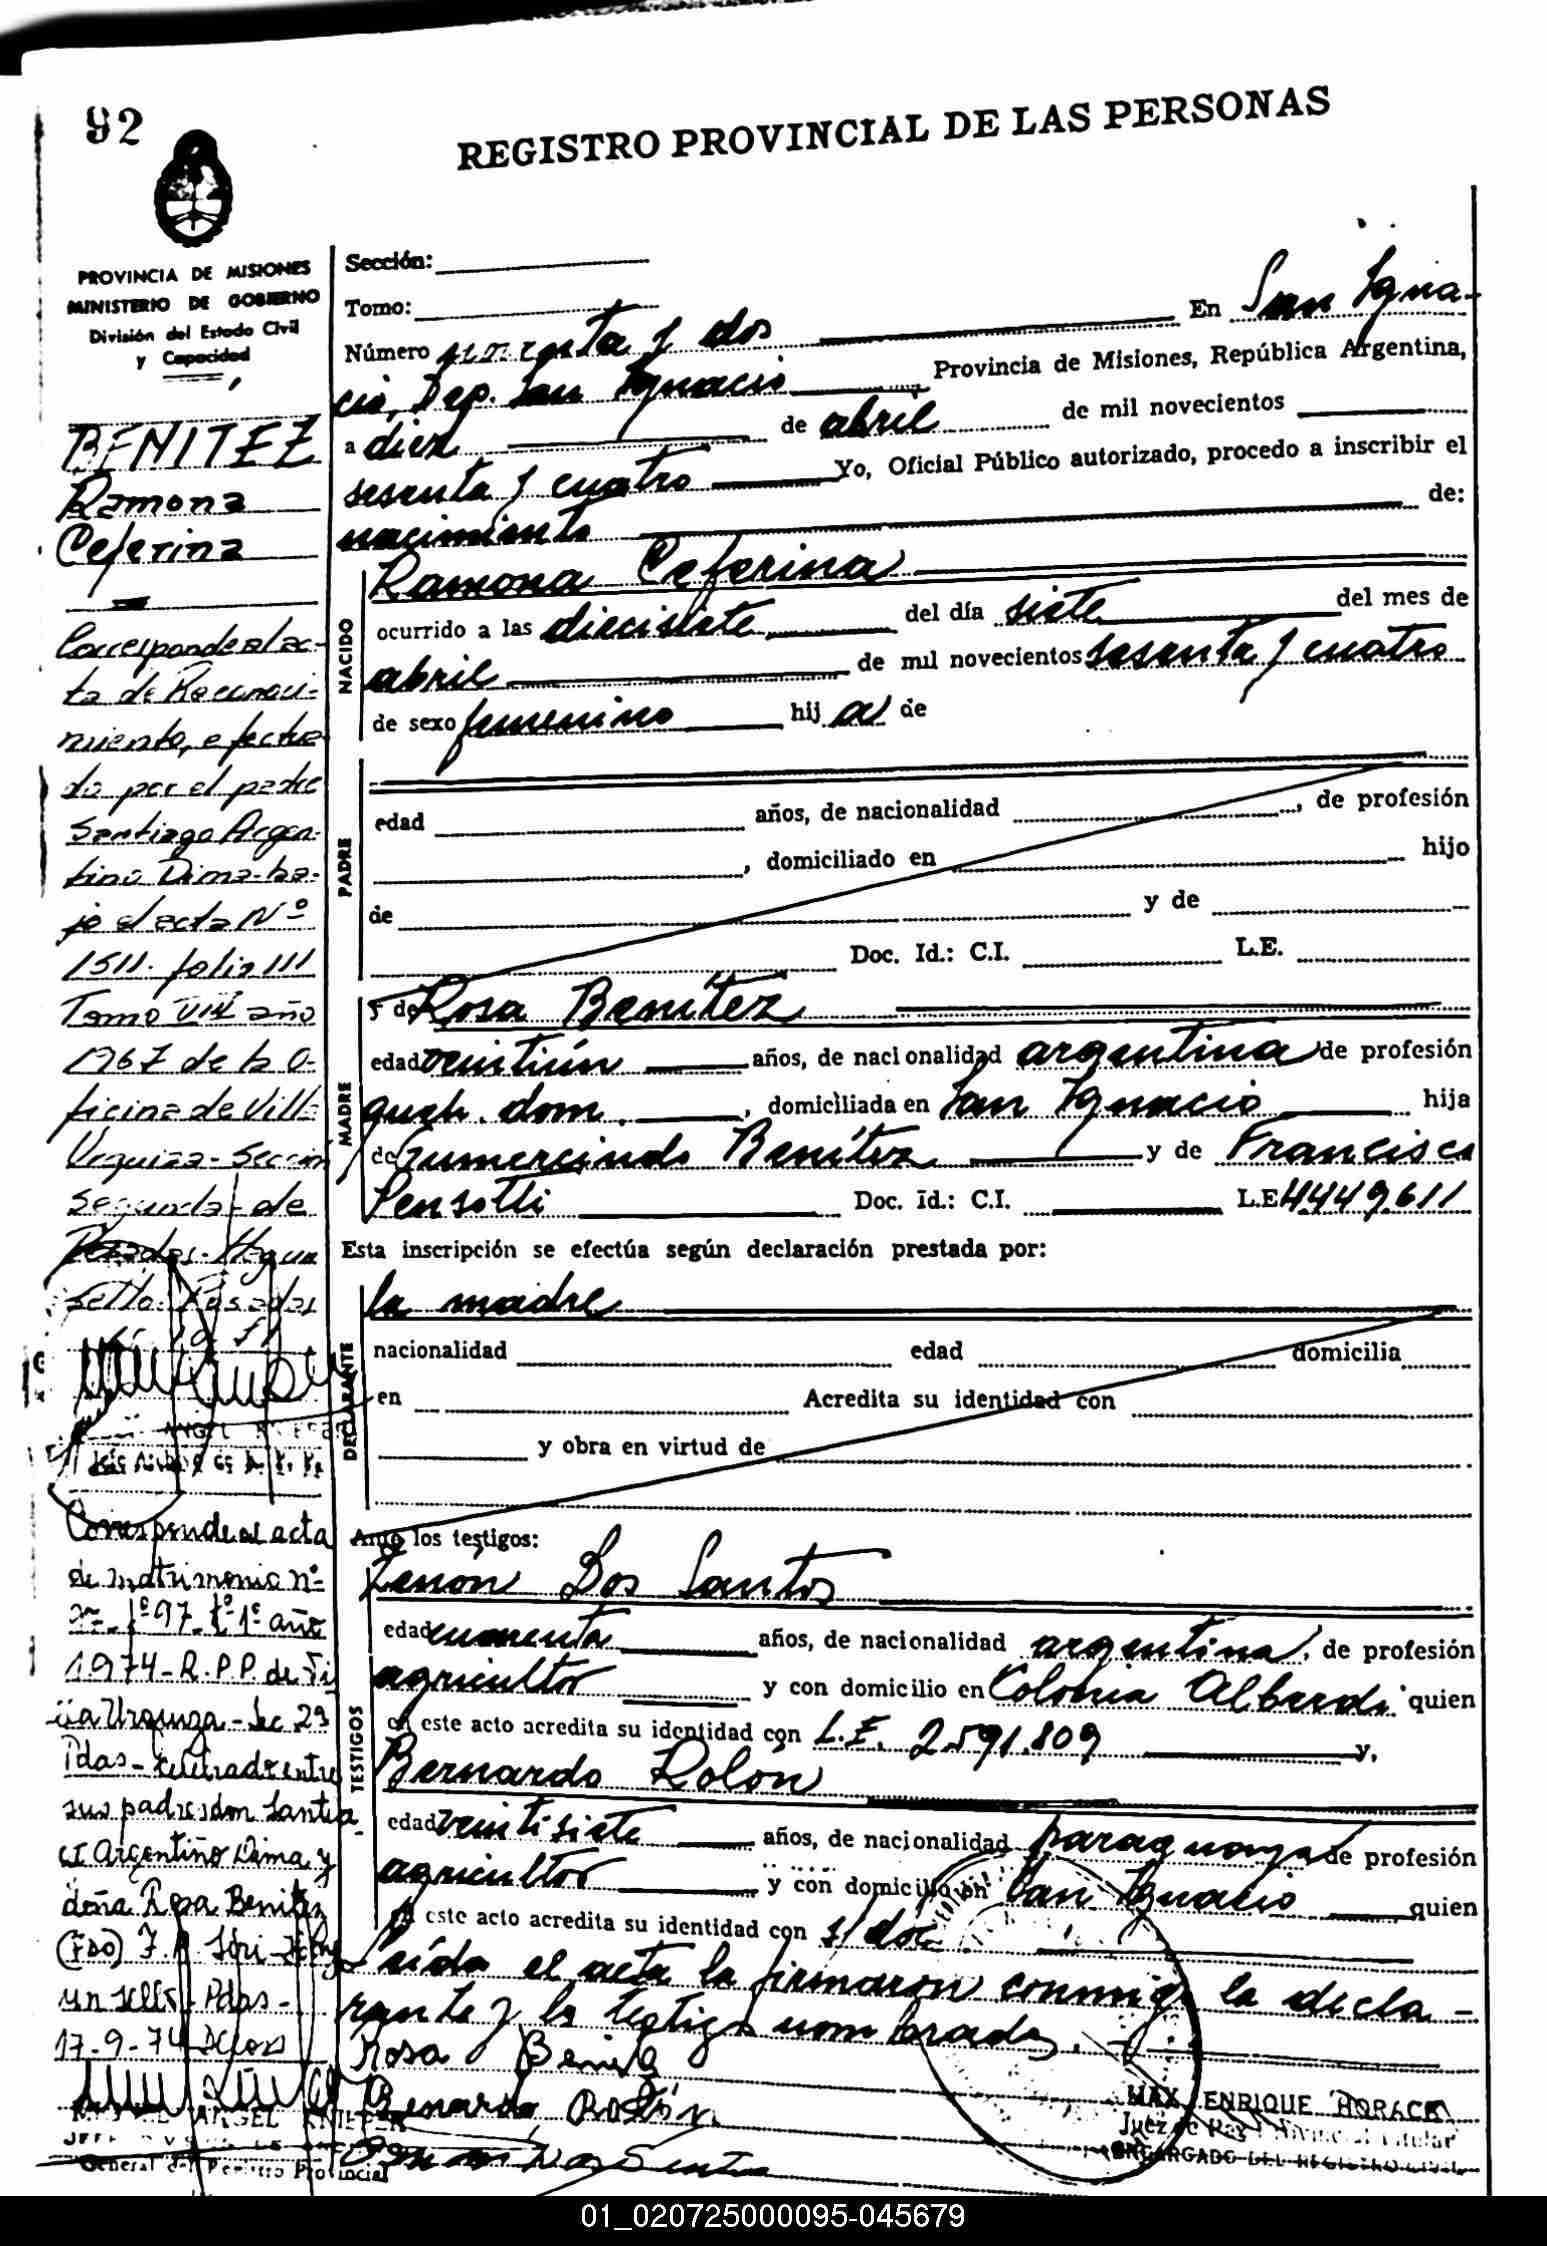 92
REGISTRO PROVINCIAL DE LAS PERSONAS
PROVINCIA DE MISIONES
MINISTERIO DE GOBIERNO
División del Estado Civil
y Capacidad
BENITEZ
Ramona
Ceferina
Corresponde al ac-
ta de Reconoci-
miento, efectua
do por el padre
Santiago Argen-
tino Dima-ba-
jo el acta Nº
1511. folio 111
Tomo VIII año
1967 de la O-
ficina de Villa
Urquiza - Sección
Segunda - de
Posadas - Hay un
sello. Posadas
Corresponde al acta
de matrimonio nº
1º 97 - tº 1º año
1974 - R.P.P. de Vi
lla Urquiza - Sec. 2ª
Pdas - celebrado entre
sus padres don Santia
go Argentino Dima y
doña Rosa Benitez
(FDO)
un sello - Pdas -
17-9-74
ANGEL
General del Registro Provincial
Sección:
Tomo:
Número cuarenta y dos En San Igna-
cio, Dep. San Ignacio Provincia de Misiones, República Argentina,
a diez de abril de mil novecientos
sesenta y cuatro Yo, Oficial Público autorizado, procedo a inscribir el
nacimiento de:
NACIDO
Ramona Ceferina
ocurrido a las diecisiete del día siete del mes de
abril de mil novecientos sesenta y cuatro
de sexo femenino hij a de
PADRE
edad años, de nacionalidad , de profesión
, domiciliado en hijo
de y de
Doc. Id.: C.I. L.E.
MADRE
y de Rosa Benítez
edad veintiún años, de nacionalidad argentina de profesión
queh. dom. , domiciliada en San Ignacio hija
de Gumercindo Benítez y de Francisca
Pensotti Doc. Id.: C.I. L.E 4449611
Esta inscripción se efectúa según declaración prestada por:
DECLARANTE
la madre
nacionalidad edad domicilia
en Acredita su identidad con
y obra en virtud de
Ante los testigos:
TESTIGOS
Zenón Dos Santos
edad cuarenta años, de nacionalidad argentina, de profesión
agricultor y con domicilio en Colonia Alberdi quien
en este acto acredita su identidad con L.E. 2.591.809 y,
Bernardo Rolón
edad veintisiete años, de nacionalidad paraguaya de profesión
agricultor y con domicilio en San Ignacio quien
en este acto acredita su identidad con s/doc.
Leída el acta la firmaron conmigo la decla-
rante y los testigos nombrados.
Rosa Benitez
Bernardo Rolón
MAX ENRIQUE
ENCARGADO DEL REGISTRO CIVIL
01_020725000095-045679